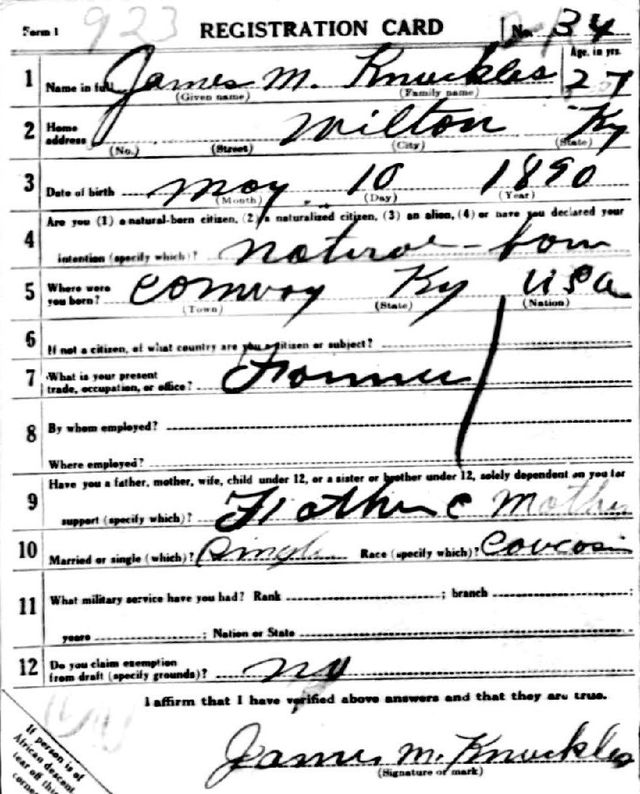 Form 1 923 REGISTRATION CARD No. 34
1 Name in full James M. Knuckles Age, in yrs. 27
(Given name) (Family name)
2 Home address Wilton Ky
(No.) (Street) (City) (State)
3 Date of birth May 10 1890
(Month) (Day) (Year)
4 Are you (1) a natural-born citizen, (2) a naturalized citizen, (3) an alien, (4) or have you declared your
intention (specify which)? Natural-born
5 Where were you born? Ky USA
(Town) (State) (Nation)
6 If not a citizen, of what country are you a citizen or subject?
7 What is your present trade, occupation, or office? Farmer
8 By whom employed?
Where employed?
9 Have you a father, mother, wife, child under 12, or a sister or brother under 12, solely dependent on you for
support (specify which)? Father & Mother
10 Married or single (which)? Single Race (specify which)? Caucasi
11 What military service have you had? Rank ; branch ;
years ; Nation or State
12 Do you claim exemption from draft (specify grounds)? No
I affirm that I have verified above answers and that they are true.
James M. Knuckles
(Signature or mark)
If person is of
African descent
tear off this
corner